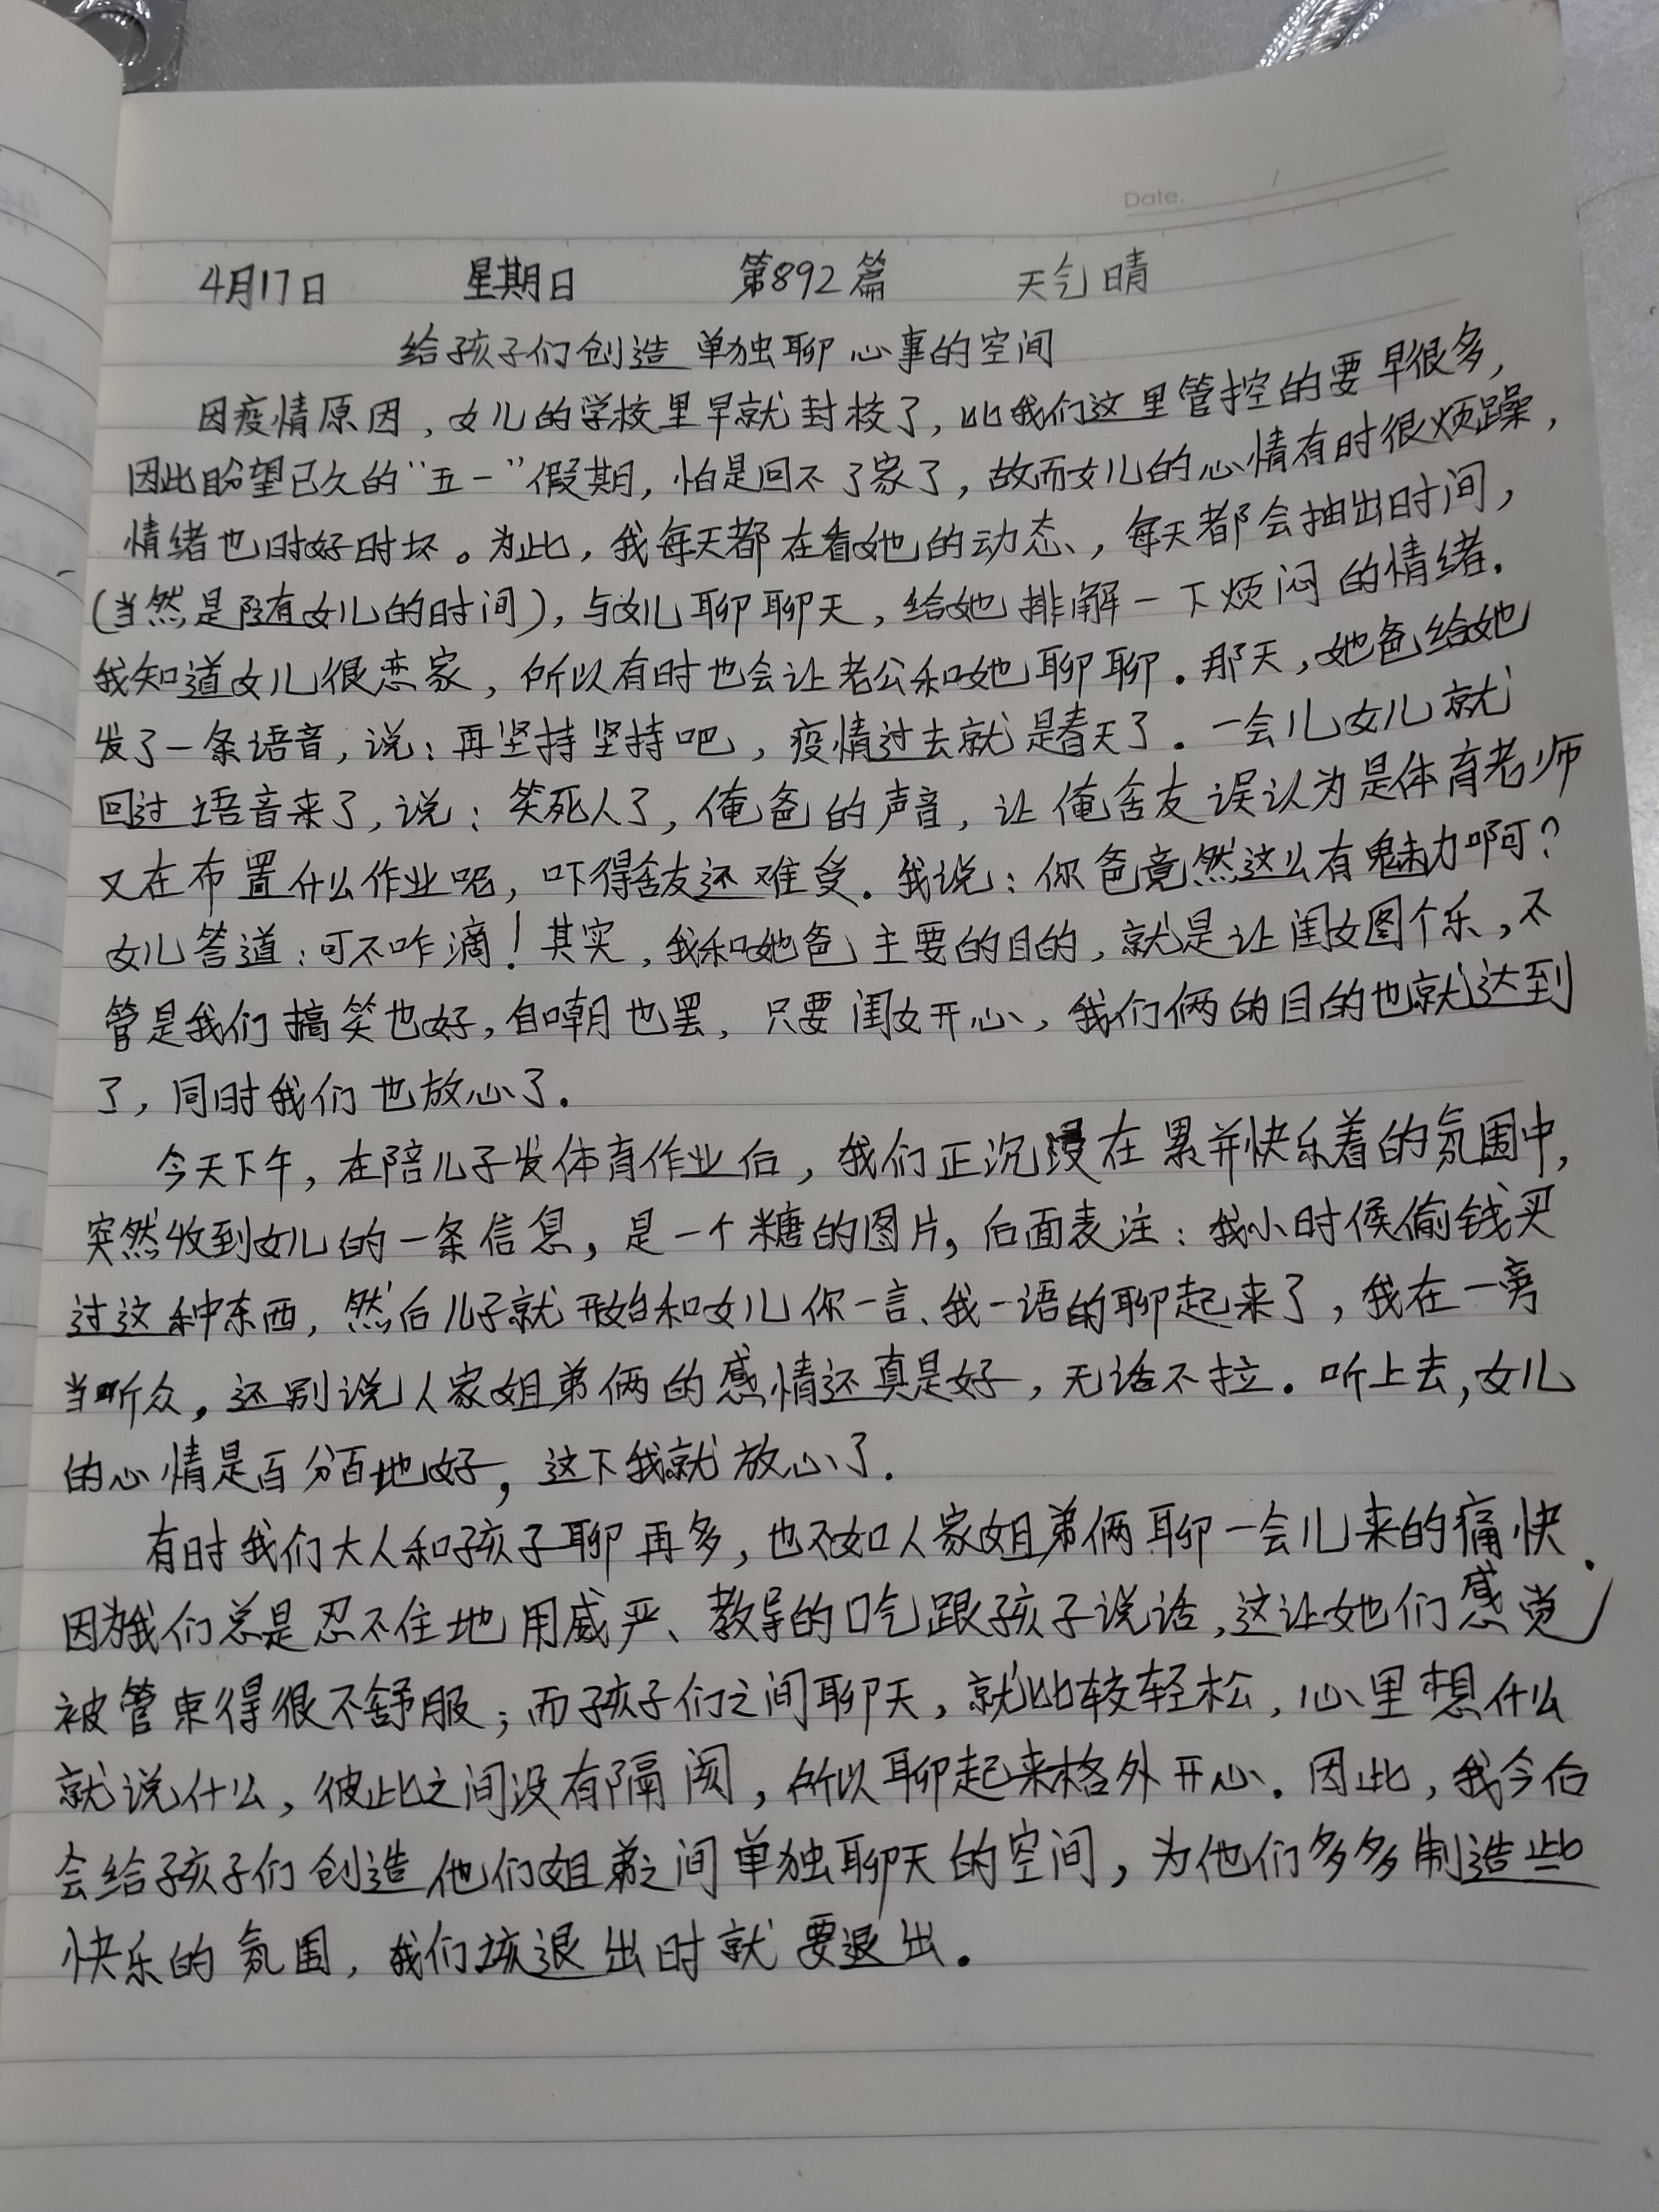 Date. /
4月17日 星期日 第892篇 天气晴
给孩子们创造单独聊心事的空间
因疫情原因，女儿的学校里早就封校了，比我们这里管控的要早很多，
因此盼望已久的“五一”假期，怕是回不了家了，故而女儿的心情有时很烦躁，
情绪也时好时坏。为此，我每天都在看她的动态，每天都会抽出时间，
(当然是随有女儿的时间)，与女儿聊聊天，给她排解一下烦闷的情绪.
我知道女儿很恋家，所以有时也会让老公和她聊聊.那天，她爸给她
发了一条语音，说：再坚持坚持吧，疫情过去就是春天了.一会儿女儿就
回过语音来了，说：笑死人了，俺爸的声音，让俺舍友误认为是体育老师
又在布置什么作业呢，吓得舍友还难受.我说：你爸竟然这么有魅力啊？
女儿答道：可不咋滴！其实，我和她爸主要的目的，就是让闺女图个乐，不
管是我们搞笑也好，自嘲也罢，只要闺女开心，我们俩的目的也就达到
了，同时我们也放心了.
今天下午，在陪儿子发体育作业后，我们正沉浸在累并快乐着的氛围中，
突然收到女儿的一条信息，是一个糖的图片，后面表注：我小时候偷钱买
过这种东西，然后儿子就开始和女儿你一言、我一语的聊起来了，我在一旁
当听众，还别说人家姐弟俩的感情还真是好，无话不拉.听上去，女儿
的心情是百分百地好，这下我就放心了.
有时我们大人和孩子聊再多，也不如人家姐弟俩聊一会儿来的痛快.
因为我们总是忍不住地用威严、教导的口气跟孩子说话，这让她们感觉
被管束得很不舒服；而孩子们之间聊天，就比较轻松，心里想什么
就说什么，彼此之间没有隔阂，所以聊起来格外开心.因此，我今后
会给孩子们创造他们姐弟之间单独聊天的空间，为他们多多制造些
快乐的氛围，我们该退出时就要退出.